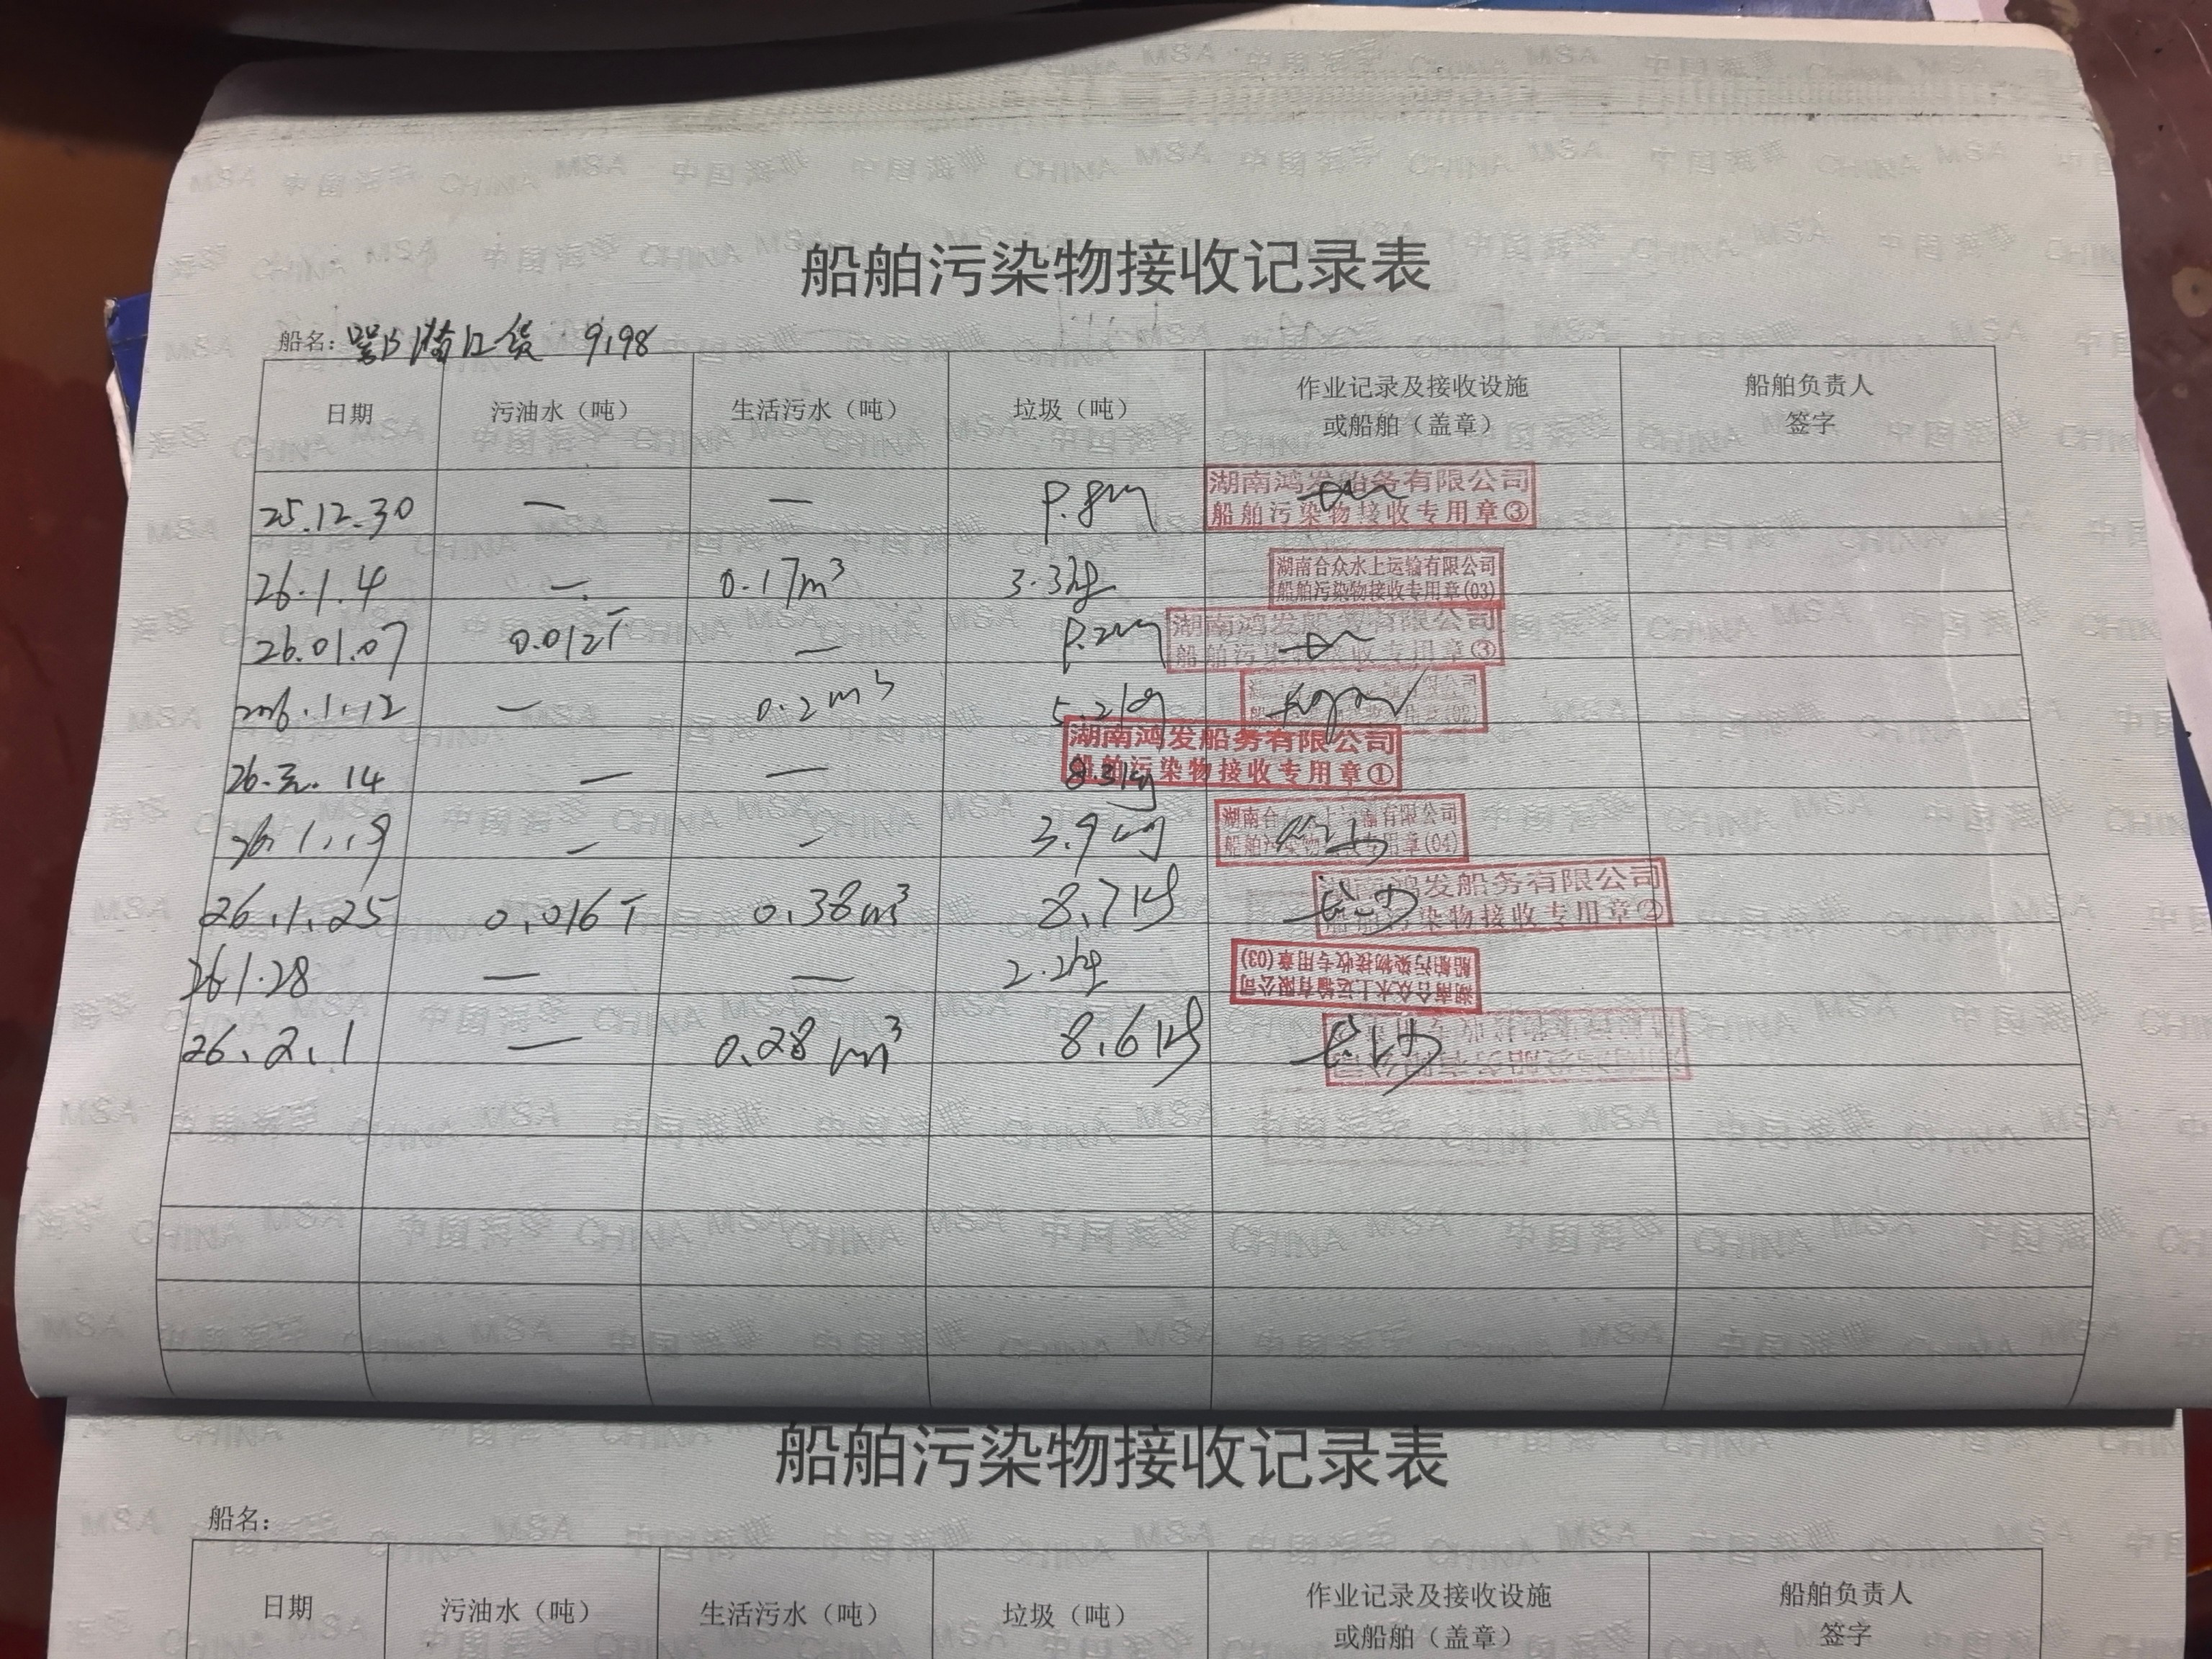 船舶污染物接收记录表
船名: 鄂潜江货 9198
日期 污油水（吨） 生活污水（吨） 垃圾（吨） 作业记录及接收设施或船舶（盖章） 船舶负责人签字
25.12.30 — — 湖南鸿发船务有限公司 船舶污染物接收专用章③
26.1.4 — 0.17m³ 3.3kg 湖南合众水上运输有限公司 船舶污染物接收专用章(03)
26.01.07 0.012T — 湖南鸿发船务有限公司 船舶污染物接收专用章③
2026.1.12 — 0.2m³ 5.2kg
26.元.14 — — 8.3kg 湖南鸿发船务有限公司 船舶污染物接收专用章①
26.1.19 — — 3.9kg 湖南合众水上运输有限公司 船舶污染物接收专用章(04)
26.1.25 0.016T 0.38m³ 8.7kg 湖南鸿发船务有限公司 船舶污染物接收专用章②
26.1.28 — — 2.2kg 湖南合众水上运输有限公司 船舶污染物接收专用章(03)
26.2.1 — 0.28m³ 8.6kg
船舶污染物接收记录表
船名:
日期 污油水（吨） 生活污水（吨） 垃圾（吨） 作业记录及接收设施或船舶（盖章） 船舶负责人签字